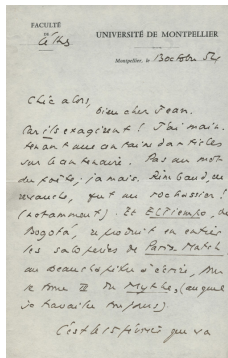 FACULTÉ
DE
Lettres
UNIVERSITÉ DE MONTPELLIER
Montpellier, le 13 octobre 54
Chic alors,
bien cher Jean.
Car ils exagèrent ! J'ai main-
tenant une centaine d'articles
sur le centenaire. Pas un mot
du poète; jamais. Rimbaud, en
revanche, fut un
(notamment). Et El Tiempo, de
Bogotá, reproduit en entier
les saloperies de Paris Match
au beau chapitre d'écrire,
le tome II du Mythe, (auquel
je travaille toujours).
C'est le 15 février que va